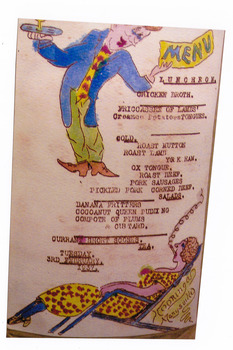 MENU
LUNCHEON.
CHICKEN BROTH.
FRICCASSEE OF LAMBS'
Creamed Potatoes TONGUES.
COLD.
ROAST MUTTON
ROAST LAMB.
YORK HAM.
OX TONGUE.
ROAST BEEF.
PORK SAUSAGES
PICKLED PORK CORNED BEEF.
SALADS.
BANANA FRITTERS
COCOANUT QUEEN PUDING
COMPOTE OF PLUMS
& CUSTARD.
CURRANT SHORT
TEA.
TUESDAY.
3RD FEBRUARY.
1937.